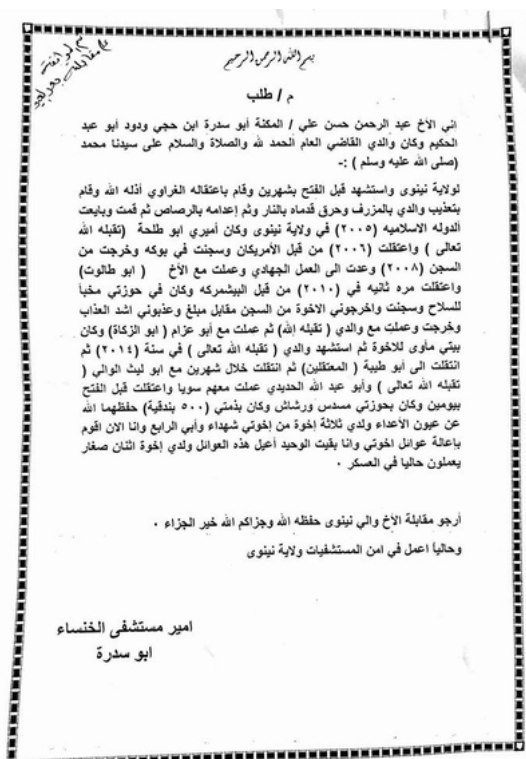 بسم الله الرحمن الرحيم
م / طلب
اني الأخ عبد الرحمن حسن علي / المكنة أبو سدرة ابن حجي ودود أبو عبد
الحكيم وكان والدي القاضي العام الحمد لله والصلاة والسلام على سيدنا محمد
(صلى الله عليه وسلم ) :-
لولاية نينوى واستشهد قبل الفتح بشهرين وقام باعتقاله الغراوي أذله الله وقام
بتعذيب والدي بالمزرف وحرق قدماه بالنار وثم إعدامه بالرصاص ثم قمت وبايعت
ألدوله الاسلاميه (٢٠٠٥) في ولاية نينوى وكان أميري ابو طلحة (تقبله الله
تعالى ) واعتقلت (٢٠٠٦) من قبل الأمريكان وسجنت في بوكه وخرجت من
السجن (٢٠٠٨) وعدت الى العمل الجهادي وعملت مع الأخ ( ابو طالوت)
واعتقلت مره ثانيه في (٢٠١٠) من قبل البيشمركه وكان في حوزتي مخبأ
للسلاح وسجنت واخرجوني الاخوة من السجن مقابل مبلغ وعذبوني اشد العذاب
وخرجت وعملت مع والدي ( تقبله الله) ثم عملت مع أبو عزام ( ابو الزكاة) وكان
بيتي مأوى للاخوة ثم استشهد والدي ( تقبله الله تعالى ) في سنة (٢٠١٤) ثم
انتقلت الى أبو طيبة ( المعتقلين) ثم انتقلت خلال شهرين مع ابو ليث الوالي (
تقبله الله تعالى ) وأبو عبد الله الحديدي عملت معهم سويا واعتقلت قبل الفتح
بيومين وكان بحوزتي مسدس ورشاش وكان بذمتي (٥٠٠ بندقية) حفظهما الله
عن عيون الأعداء ولدي ثلاثة إخوة من إخوتي شهداء وأبي الرابع وانا الان اقوم
بإعالة عوائل اخوتي وانا بقيت الوحيد أعيل هذه العوائل ولدي إخوة اثنان صغار
يعملون حاليا في العسكر .
أرجو مقابلة الأخ والي نينوى حفظه الله وجزاكم الله خير الجزاء .
وحالياً اعمل في امن المستشفيات ولاية نينوى
امير مستشفى الخنساء
ابو سدرة